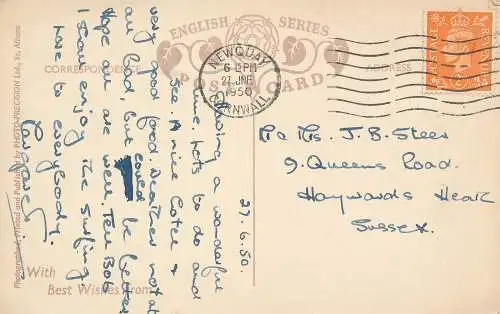 ENGLISH SERIES
POST CARD
CORRESPONDENCE
ADDRESS
NEWQUAY
6 PM
27 JNE
1950
CORNWALL
POSTAGE
REVENUE
27.6.50.
Having a wonderful
time. Lots to do and
see. A nice hotel &
very good food. Weather not at
all bad, but could be better
Hope all are well. Tell Bob
I shall enjoy the surfing.
Love to everybody.
With
Best Wishes from
Photographed, Printed and Published by PHOTO-PRECISION Ltd., St. Albans
Mrs. J. B. Steer
9. Queens Road.
Haywards Heath
Sussex.